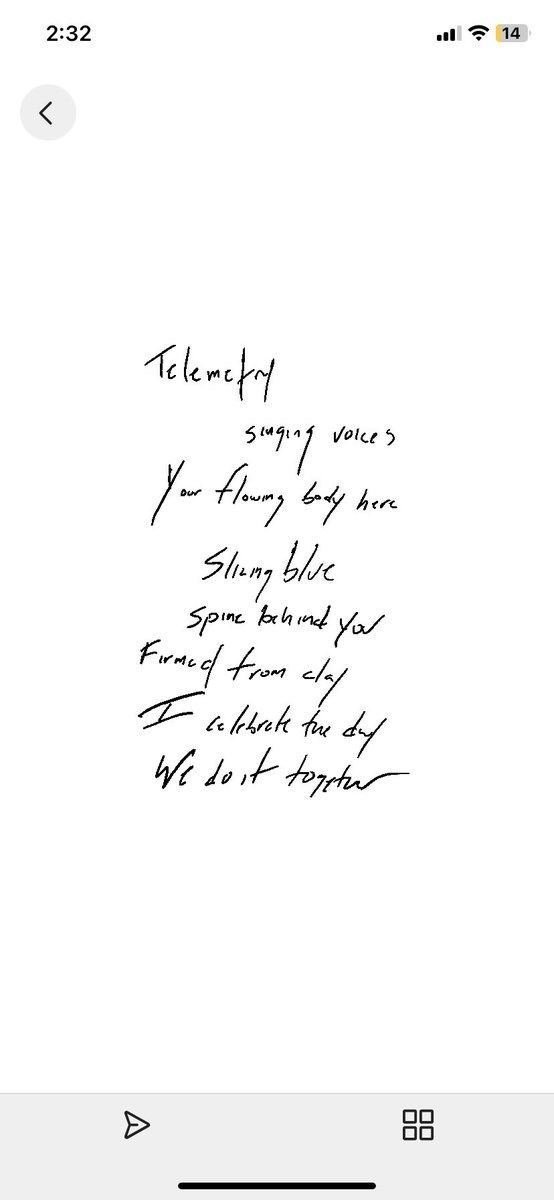 2:32
14
Telemetry
singing voices
Your flowing body here
blue
Spine behind you
Firmed from clay
I celebrate the day
We do it together